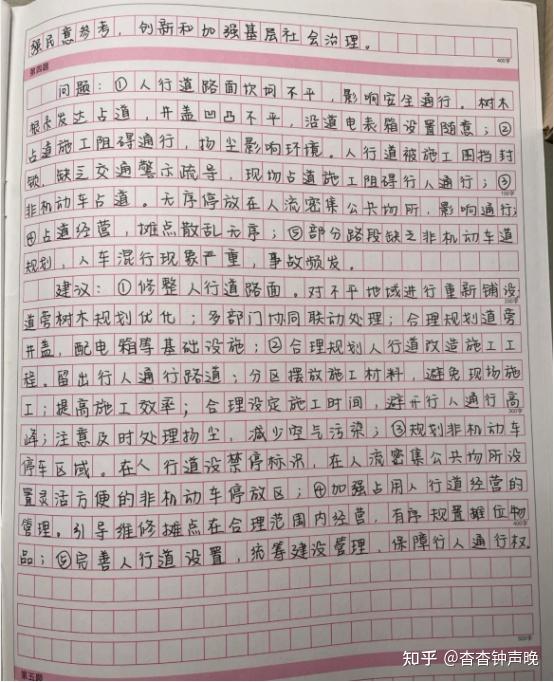 强民意参考，创新和加强基层社会治理。
400字
第四题
问题：①人行道路面坎坷不平，影响安全通行。树木
根系发达占道，井盖凹凸不平，沿道电表箱设置随意；②
占道施工阻碍通行，扬尘影响环境。人行道被施工围挡封
锁，缺乏交通警示疏导，现场占道施工阻碍行人通行；③
100字
非机动车占道。无序停放在人流密集公共场所，影响通行；
④占道经营，摊点散乱无序；⑤部分路段缺乏非机动车道
规划，人车混行现象严重，事故频发。
建议：①修整人行道路面。对不平地域进行重新铺设，
200字
道旁树木规划优化；多部门协同联动处理；合理规划道旁
井盖，配电箱等基础设施；②合理规划人行道改造施工工
程。留出行人通行路道；分区摆放施工材料，避免现场施
工；提高施工效率；合理设定施工时间，避开行人通行高
300字
峰；注意及时处理扬尘，减少空气污染；③规划非机动车
停车区域。在人行道设禁停标识，在人流密集公共场所设
置灵活方便的非机动车停放区；④加强占用人行道经营的
管理。引导维修摊点在合理范围内经营，有序规置摊位物
400字
品；⑤完善人行道设置，统筹建设管理，保障行人通行权。
500字
第五题
知乎 @杳杳钟声晚